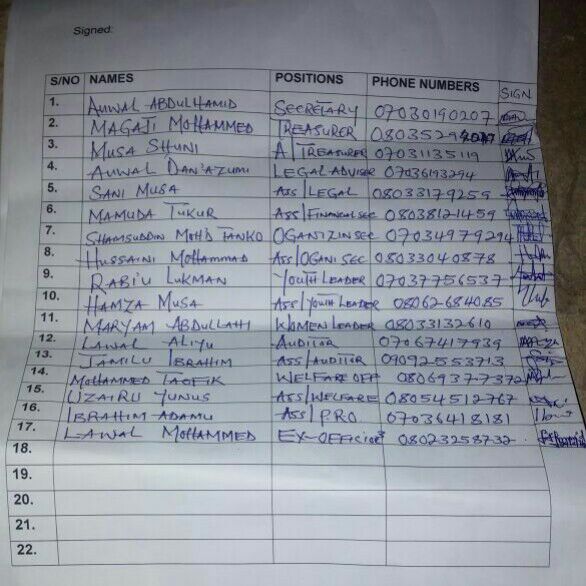 Signed:
S/NO NAMES POSITIONS PHONE NUMBERS SIGN
1. AUWAL ABDULHAMID SECRETARY 07030190207
2. MAGAJI MOHAMMED TREASURER
3. MUSA SHUNI A/TREASURER 07031135119
4. AUWAL DAN'AZUMI LEGAL ADVISER 07036193294
5. SANI MUSA ASS/LEGAL 08033179259
6. MAMUDA TUKUR ASS/FINANCIAL SEC 08038121459
7. SHAMSUDDIN MOH'D TANKO OGANIZIN SEC 07034979294
8. HUSSAINI MOHAMMAD ASS/OGANI SEC 08033040878
9. RABI'U LUKMAN YOUTH LEADER 07037756537
10. HAMZA MUSA ASS/YOUTH LEADER 08062684085
11. MARYAM ABDULLAHI WOMEN LEADER 08033132610
12. LAWAL ALIYU AUDITOR 07067417939
13. JAMILU IBRAHIM ASS/AUDITOR 09092553713
14. MOHAMMED TAOFIK WELFARE OFF 08069377372
15. UZAIRU YUNUS ASS/WELFARE 08054512767
16. IBRAHIM ADAMU ASS/P.R.O 07036418181
17. LAWAL MOHAMMED EX-OFFICIO 08023258732
18.
19.
20.
21.
22.